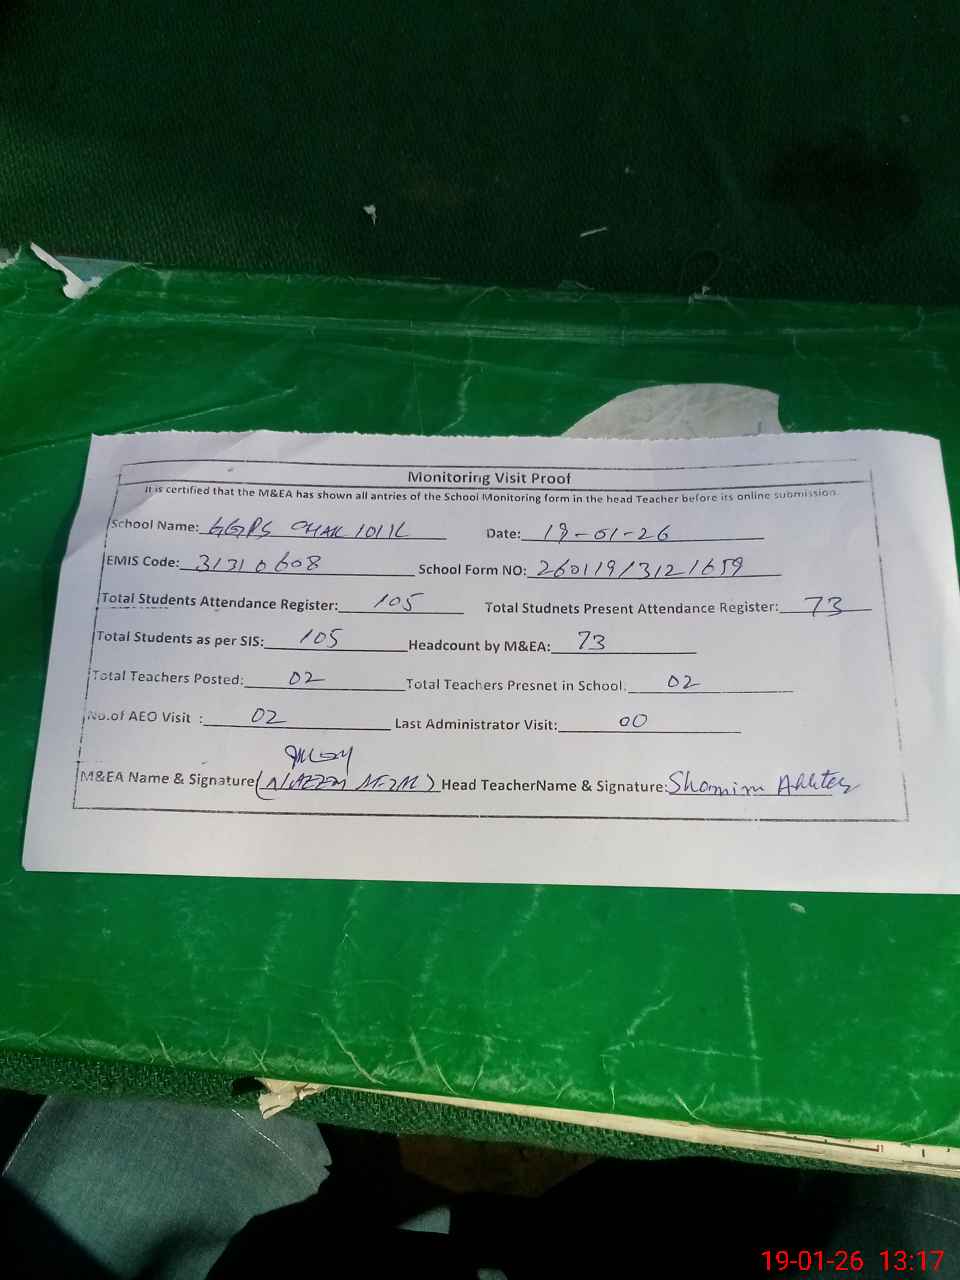 Monitoring Visit Proof
It is certified that the M&EA has shown all antries of the School Monitoring form in the head Teacher before its online submission.
School Name: GGPS CHAK 101 1L Date: 19-01-26
EMIS Code: 31310608 School Form NO: 260119/3121659
Total Students Attendance Register: 105 Total Studnets Present Attendance Register: 73
Total Students as per SIS: 105 Headcount by M&EA: 73
Total Teachers Posted: 02 Total Teachers Presnet in School: 02
No.of AEO Visit : 02 Last Administrator Visit: 00
M&EA Name & Signature Head TeacherName & Signature: Shamim Akhter
19-01-26 13:17